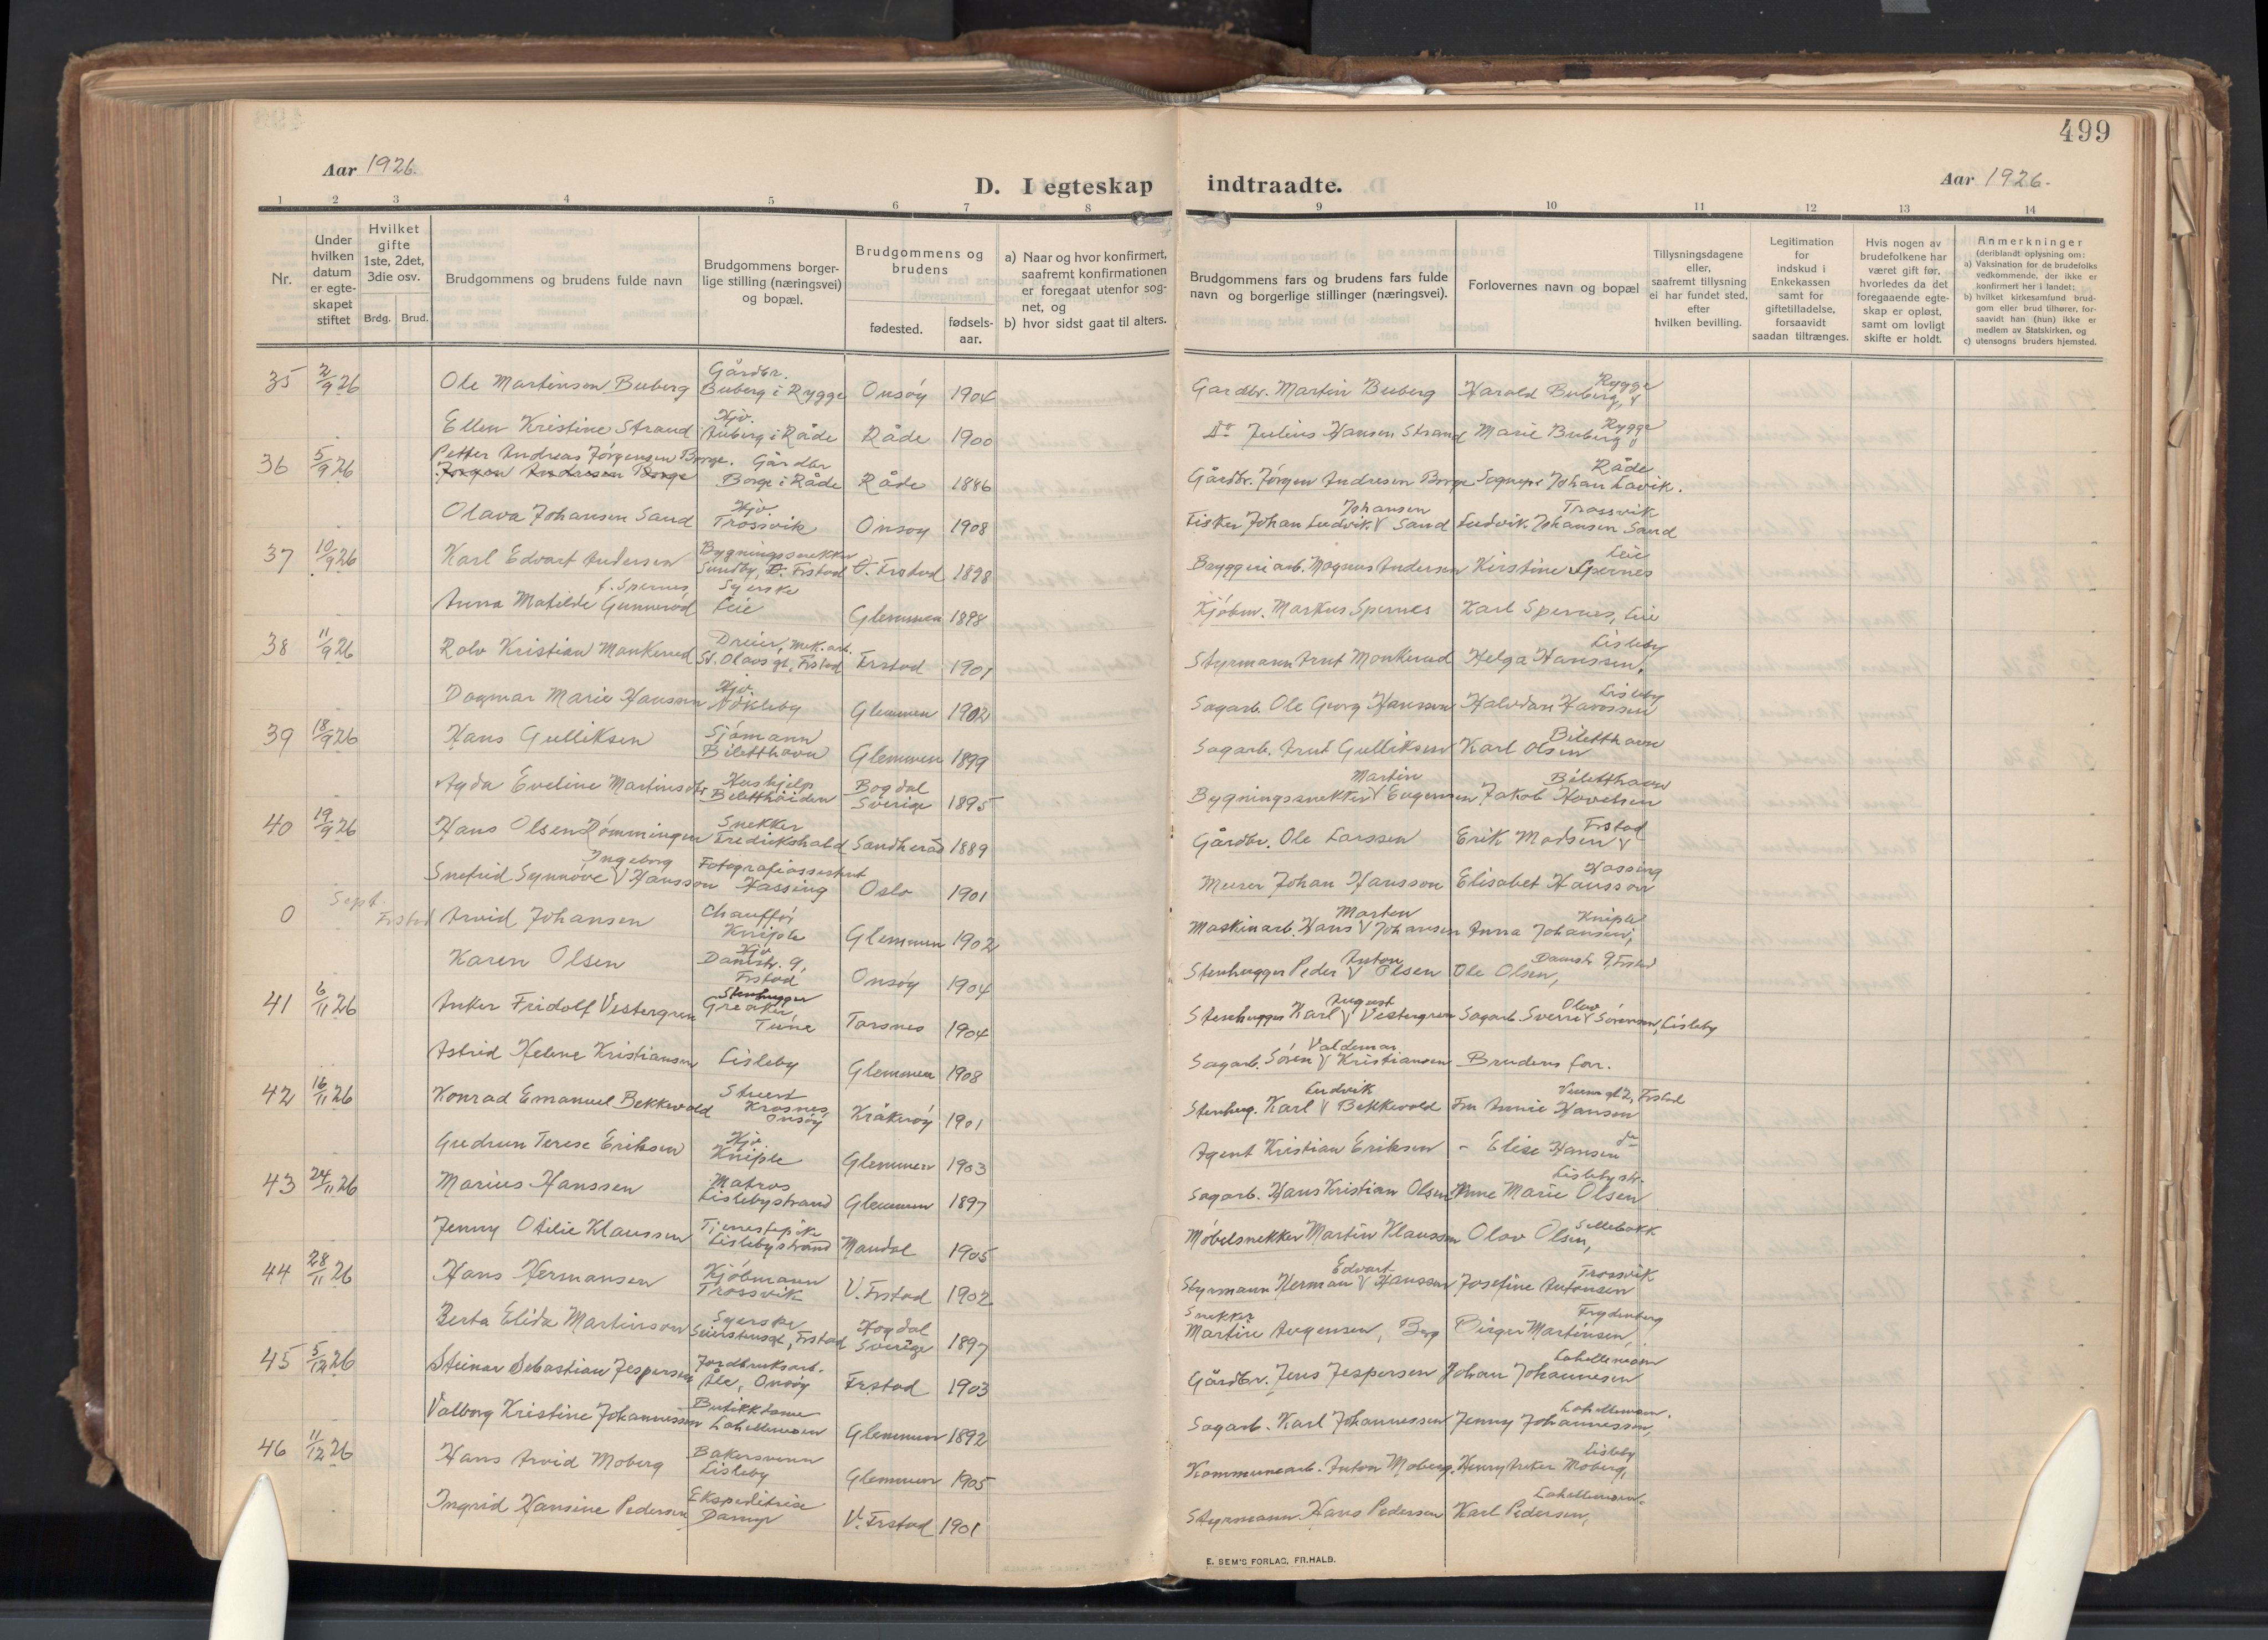 499
Aar 1926.
D. I egteskap indtraadte.
Aar 1926.
1 2 3 4 5 6 7 8 9 10 11 12 13 14
Nr.
Under
hvilken
datum
er egte-
skapet
stiftet
Hvilket
gifte
1ste, 2det,
3die osv.
Brdg. Brud.
Brudgommens og brudens fulde navn
Brudgommens borger-
lige stilling (næringsvei)
og bopæl.
Brudgommens og
brudens
fødested.
fødsels-
aar.
a) Naar og hvor konfirmert,
saafremt konfirmationen
er foregaat utenfor sog-
net, og
b) hvor sidst gaat til alters.
Brudgommens fars og brudens fars fulde
navn og borgerlige stillinger (næringsvei).
Forlovernes navn og bopæl
Tillysningsdagene
eller,
saafremt tillysning
ei har fundet sted,
efter
hvilken bevilling.
Legitimation
for
indskud i
Enkekassen
samt for
giftetilladelse,
forsaavidt
saadan tiltrænges.
Hvis nogen av
brudefolkene har
været gift før,
hvorledes da det
foregaaende egte-
skap er opløst,
samt om lovligt
skifte er holdt.
Anmerkninger
(deriblandt oplysning om:
a) Vaksination for de brudefolks
vedkommende, der ikke er
konfirmert her i landet;
b) hvilket kirkesamfund brud-
gom eller brud tilhører, for-
saavidt han (hun) ikke er
medlem av Statskirken, og
c) utensogns bruders hjemsted.
Gårdbr. Rygge
35 2/9 26 Ole Martinsen Buberg Buberg i Rygge Onsøy 1904 Gardbr. Martin Buberg Harald Buberg,
Hjv. Rygge
Ellen Kristine Strand Åuberg i Råde Råde 1900 Do Julius Hansen Strand Marie Buberg
Petter Andreas Jørgensen Borge. Gårdbr Råde
36 5/9 26 Jørgen Andresen Borge Borge i Råde Råde 1886 Gårdbr. Jørgen Andresen Borge Sogneprs Johan Lavik.
Hjv. Johansen Trossvik
Olava Johansen Sand Trossvik Onsøy 1908 Fisker Johan Ludvik V Sand Ludvik Johansen Sand
Bygningssnekker Leie
37 10/9 26 Karl Edvart Andersen Sundby, Ø. Frstad Ø. Frstad 1898 Bryggeriarb. Magnus Andersen Kirstine Spernes
f. Spernes Syerske
Anna Matilde Gunnerød Leie Glemmen 1898 Kjøbm. Markus Spernes Karl Spernes, Leie
Dreier, mek. arb. Lisleby
38 11/9 26 Rolv Kristian Monkerud St. Olavs gt. Frstad Frstad 1901 Styrmann Arnt Monkerud Helga Hanssen,
Hjv. Lisleby
Dagmar Marie Hanssen Nøkleby Glemmen 1902 Sagarb. Ole Georg Hanssen Halvdan Hanssen
Sjømann Biletthavn
39 18/9 26 Hans Gulliksen Biletthavn Glemmen 1899 Sagarb. Arnt Gulliksen Karl Olsen
Hushjelp Bogdal Martin Biletthavn
Agda Eveline Martinsdtr Biletthøiden Sverige 1895 Bygningssnekker V Eugensen Jakob Hovelsen
Snekker Frstad
40 19/9 26 Hans Olsen Rømmingen Fredrikshald Sandherad 1889 Gårdbr. Ole Larssen Erik Madsen V
Ingeborg Fotografiassistent Hassing
Snefrid Synnøve V Hansson Hassing Oslo 1901 Murer Johan Hansson Elisabet Hansson
Chauffør Marten Kniple
0 Sept. Frstad Arvid Johansen Kniple Glemmen 1902 Maskinarb. Hans V Johansen Anna Johansen,
Hjv Anton Damstr 9, Frstad
Karen Olsen Damstr. 9, Frstad Onsøy 1904 Stenhugger Peder V Olsen Ole Olsen,
Stenhugger August Olav
41 6/11 26 Anker Fridolf Vestergren Greåker, Tune Torsnes 1904 Stenhugger Karl V Vestergren Sagarb. Sverre V Sørensen, Lisleby
Valdemar
Astrid Helene Kristiansen Lisleby Glemmen 1908 Sagarb. Søren V Kristiansen Brudens far.
Stuert Ludvik gt 2, Frstad
42 16/11 26 Konrad Emanuel Bekkevold Krosnes Onsøy Kråkerøy 1901 Stenhug. Karl V Bekkevold Fru Annie Hansen
Hjv. do
Gudrun Terese Eriksen Kniple Glemmen 1903 Agent Kristian Eriksen - Elise Hansen
Matros Lislebystr.
43 24/11 26 Marius Hanssen Lislebystrand Glemmen 1897 Sagarb. Hans Kristian Olsen Anne Marie Olsen
Tjenestepike Sellebakk
Jenny Otilie Klaussen Lislebystrand Mandal 1905 Møbelsnekker Martin Klaussen Olav Olsen,
Kjøbmann Edvart Trossvik
44 28/11 26 Hans Hermansen Trossvik V. Frstad 1902 Styrmann Herman V Hanssen Josefine Antonsen
Syerske Hogdal Snekker Frydenberg
Berta Elida Martinson Seierstensgt, Frstad Sverige 1897 Martin Augensen, Berg Birger Martinsen,
Jordbruksarb. Lahellemoen
45 5/12 26 Steinar Sebastian Jespersen Åle, Onsøy Frstad 1903 Gårdbr. Jens Jespersen Johan Johannesen
Butikkdame Lahellemoen.
Valborg Kristine Johannessen Lahellemoen Glemmen 1892 Sagarb. Karl Johannessen Jenny Johannessen,
Bakersvenn Lisleby
46 11/12 26 Hans Arvid Moberg Lisleby Glemmen 1905 Kommunearb. Anton Moberg. Henry Anker Moberg,
Ekspeditrise Lahellemoen.
Ingrid Hansine Pedersen Damyr V. Frstad 1901 Styrmann Hans Pedersen Karl Pedersen,
E. SEM'S FORLAG, FR.HALD.